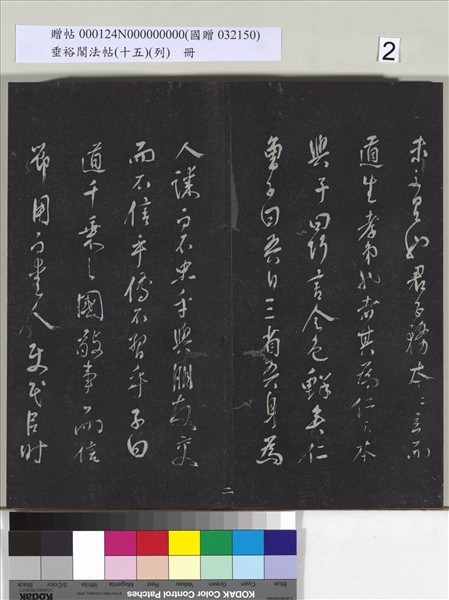 贈帖 000124N000000000(國贈 032150)
垂裕閣法帖(十五)(列) 冊
2
未之有也君子務本〻立而
道生孝弟也者其為仁之本
與子曰巧言令色鮮矣仁
曾子曰吾日三省吾身為
人謀而不忠乎與朋友交
而不信乎傳不習乎子曰
道千乘之國敬事而信
節用而愛人使民以時
二
Blue Cyan Green Yellow Red Magenta White 3/Color Black
© The Tiffen Company, 2000 KODAK Color Control Patches